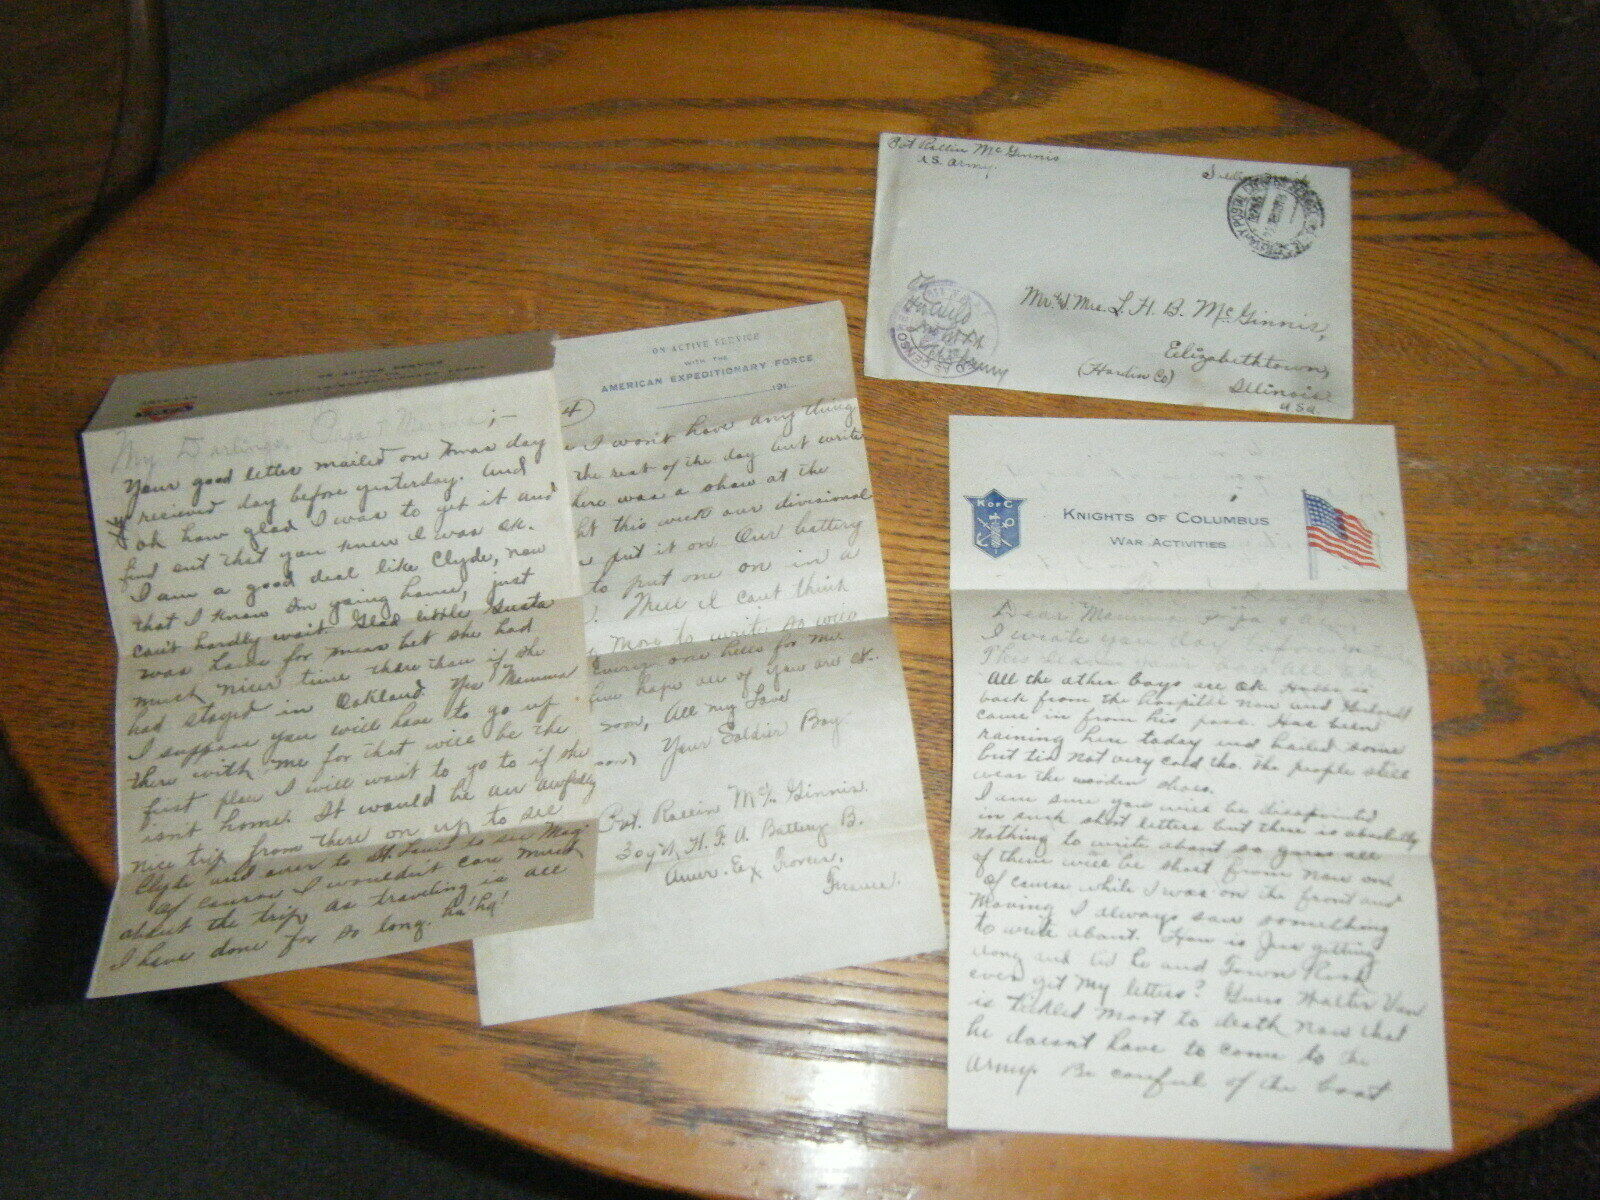 ON ACTIVE SERVICE
My Darlings Papa & Mamma;-
Your good letter mailed on Xmas day
recieved day before yesterday. And
oh how glad I was to get it and
find out that you knew I was OK.
I am a good deal like Clyde, now
that I know I'm going home, just
can't hardly wait. Glad little
was for mean bet she had
much nicer time there than if she
had stayed in Oakland. Yes Mamma
I suppose you will have to go up
there with me for that will be the
first place I will want to go to if she
isn't home. It would be an awfully
nice trip from there on up to see
Clyde and over to St. Louis to see
Of course I wouldn't care much
about the trip, as traveling is all
I have done for so long. ha! ha!
ON ACTIVE SERVICE
WITH THE
AMERICAN EXPEDITIONARY FORCE
191
4
I won't have any thing
the rest of the day but write
here was a show at the
this week our divisional
put it on. Our battery
to put one on in a
Well I can't think
more to write so will
every one hello for me
hope all of you are OK.
soon, All my Love
Your Soldier Boy
Pvt. Rollin McGinnis.
H. F. A. Battery B.
Amer. Ex Forces,
France.
Pvt Rollin McGinnis
U.S. Army.
Mr. & Mrs. L. H. B. McGinnis,
Elizabethtown,
(Hardin Co)
Illinois
USA
K of C
KNIGHTS OF COLUMBUS
WAR ACTIVITIES
Dear Mamma, Papa &
I wrote you day before
This
All the other boys are OK. is
back from the hospital now and
came in from his pass. Has been
raining here today and hailed some
but tis not very cold tho. The people still
wear the wooden shoes.
I am sure you will be disapointed
in such short letters but there is absolutely
nothing to write about so guess all
of them will be short from now on.
Of course while I was on the front and
moving I always saw something
to write about. How is getting
along and did he and
ever get my letters? Guess Walter
is tickled most to death now that
he doesn't have to come to the
army. Be careful of the boat